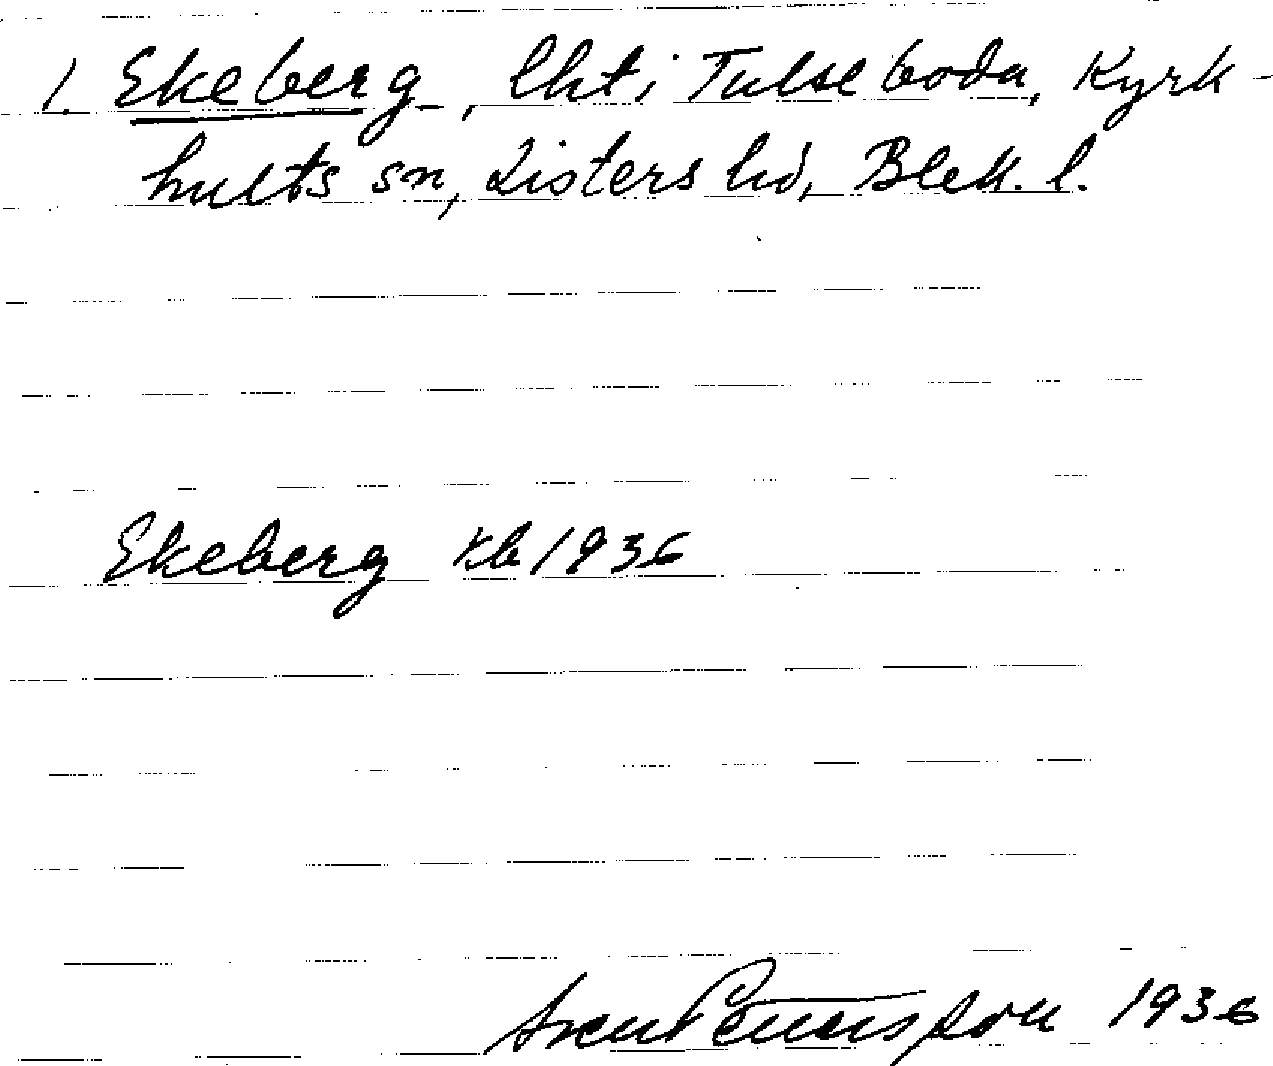 1. Ekeberg, lht i Tulseboda, Kyrk-
hults sn, Listers hd, Blek. l.
Ekeberg kb 1936
Sven Petersson 1936